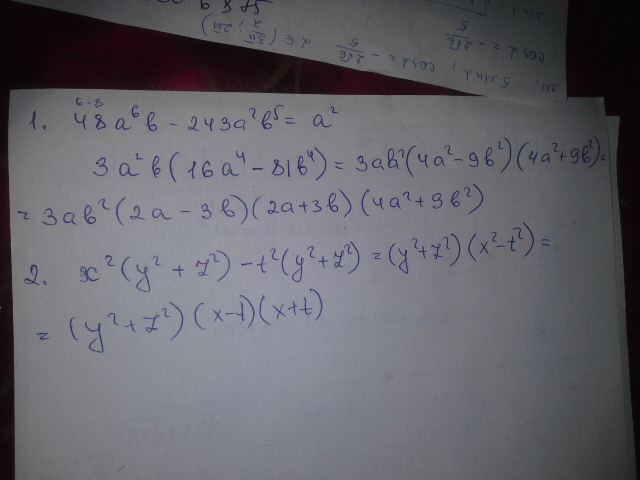 6·8
1. 48a⁶b - 243a²b⁵ = a²
3a²b(16a⁴ - 81b⁴) = 3ab²(4a² - 9b²)(4a² + 9b²) =
= 3ab²(2a - 3b)(2a + 3b)(4a² + 9b²)
2. x²(y² + z²) - t²(y² + z²) = (y² + z²)(x² - t²) =
= (y² + z²)(x - t)(x + t)